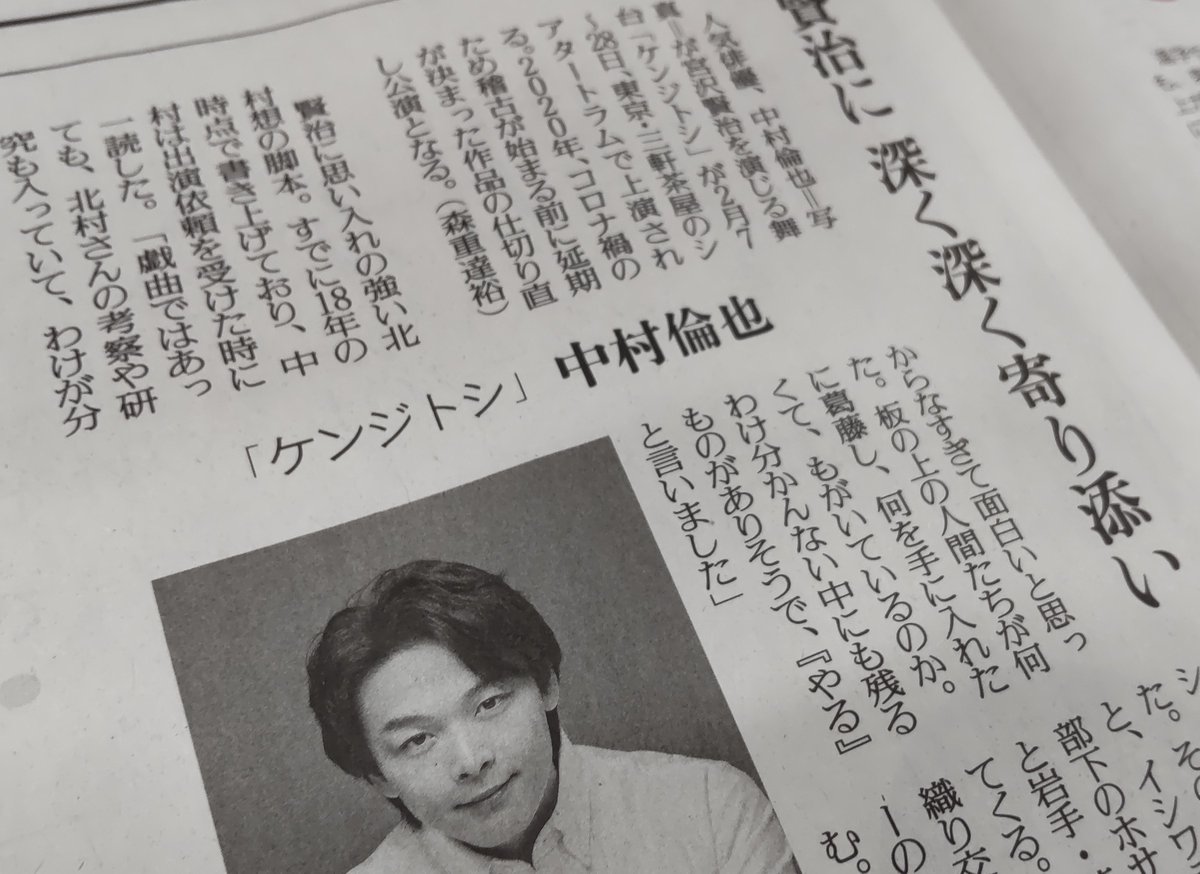 賢治に 深く深く寄り添い
人気俳優、中村倫也=写
真=が宮沢賢治を演じる舞
台「ケンジトシ」が2月7
~28日、東京・三軒茶屋のシ
アタートラムで上演され
る。2020年、コロナ禍の
ため稽古が始まる前に延期
が決まった作品の仕切り直
し公演となる。(森重達裕)
「ケンジトシ」 中村倫也
賢治に思い入れの強い北
村想の脚本。すでに18年の
時点で書き上げており、中
村は出演依頼を受けた時に
一読した。「戯曲ではあっ
ても、北村さんの考察や研
究も入っていて、わけが分
からなすぎて面白いと思っ
た。板の上の人間たちが何
に葛藤し、何を手に入れた
くて、もがいているのか。
わけ分かんない中にも残る
ものがありそうで、『やる』
と言いました」
た。その
と、イシワ
部下のホサ
と岩手・
てくる。
織り交
ーの
む。